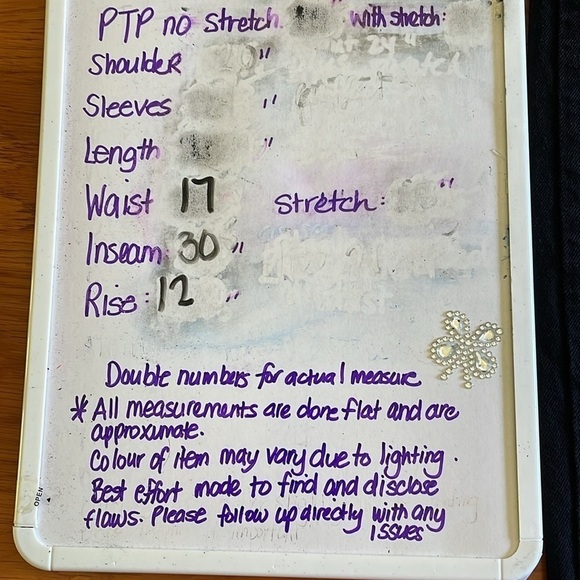 PTP no stretch " with stretch:
Shoulder "
Sleeves "
Length "
Waist 17 stretch: "
Inseam: 30 "
Rise: 12 "
Double numbers for actual measure
* All measurements are done flat and are
approxumate.
Colour of item may vary due to lighting.
Best effort made to find and disclose
flaws. Please follow up directly with any
issues
OPEN